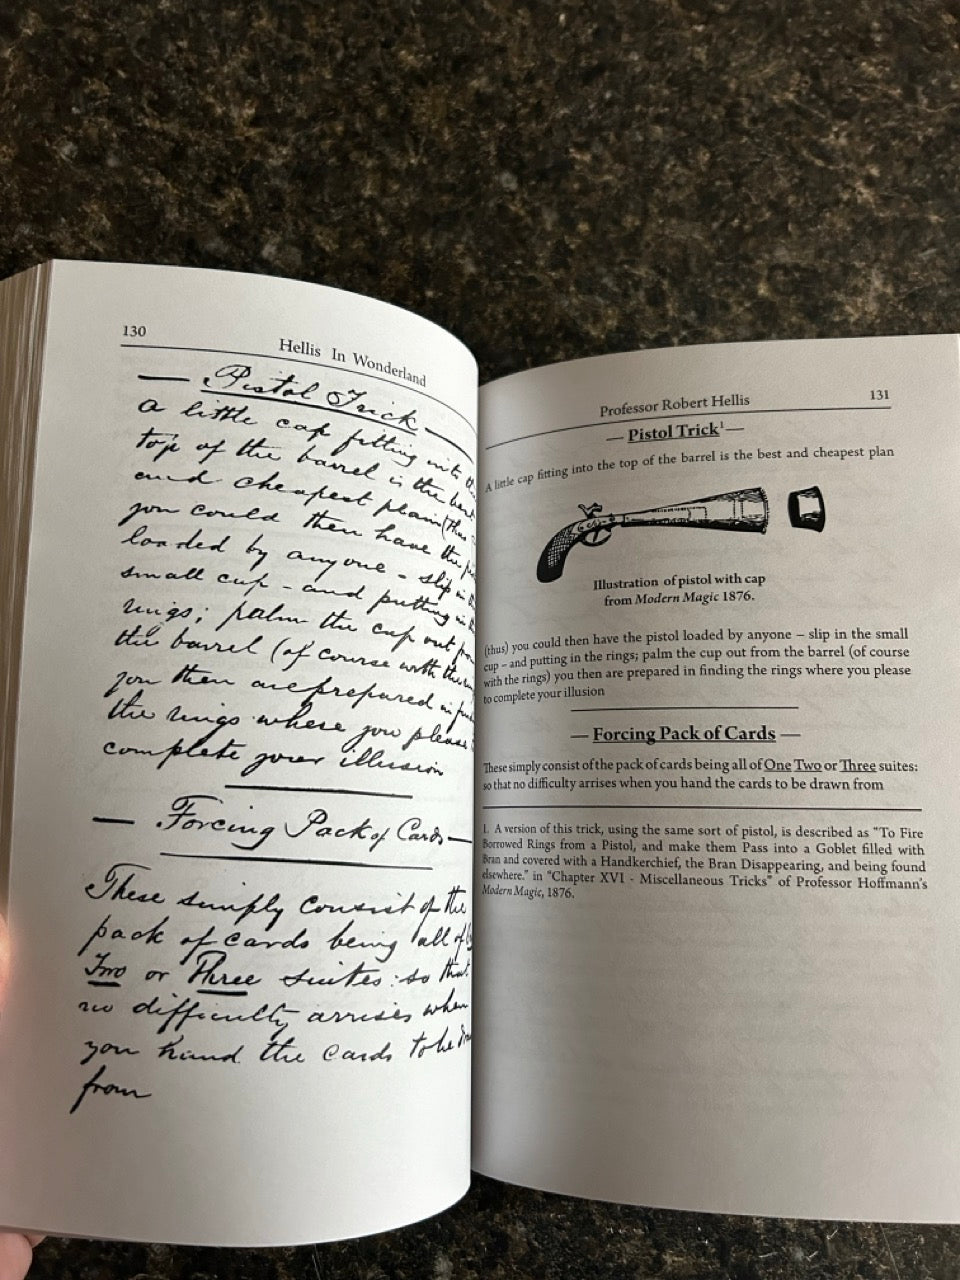 130
Hellis In Wonderland
— Pistol Trick —
A little cap fitting into
top of the barrel is the
and cheapest plan
you could then have the
loaded by anyone – slip in
small cup – and putting in
rings; palm the cup out
the barrel (of course with
you then are prepared in
the rings where you please
complete your illusion
— Forcing Pack of Cards —
These simply consist of the
pack of cards being all of
Two or Three suites: so that
no difficulty arrises when
you hand the cards to be
from
Professor Robert Hellis
131
— Pistol Trick¹—
A little cap fitting into the top of the barrel is the best and cheapest plan
Illustration of pistol with cap
from Modern Magic 1876.
(thus) you could then have the pistol loaded by anyone – slip in the small
cup – and putting in the rings; palm the cup out from the barrel (of course
with the rings) you then are prepared in finding the rings where you please
to complete your illusion
— Forcing Pack of Cards —
These simply consist of the pack of cards being all of One Two or Three suites:
so that no difficulty arises when you hand the cards to be drawn from
1. A version of this trick, using the same sort of pistol, is described as "To Fire
Borrowed Rings from a Pistol, and make them Pass into a Goblet filled with
Bran and covered with a Handkerchief, the Bran Disappearing, and being found
elsewhere." in "Chapter XVI - Miscellaneous Tricks" of Professor Hoffmann's
Modern Magic, 1876.